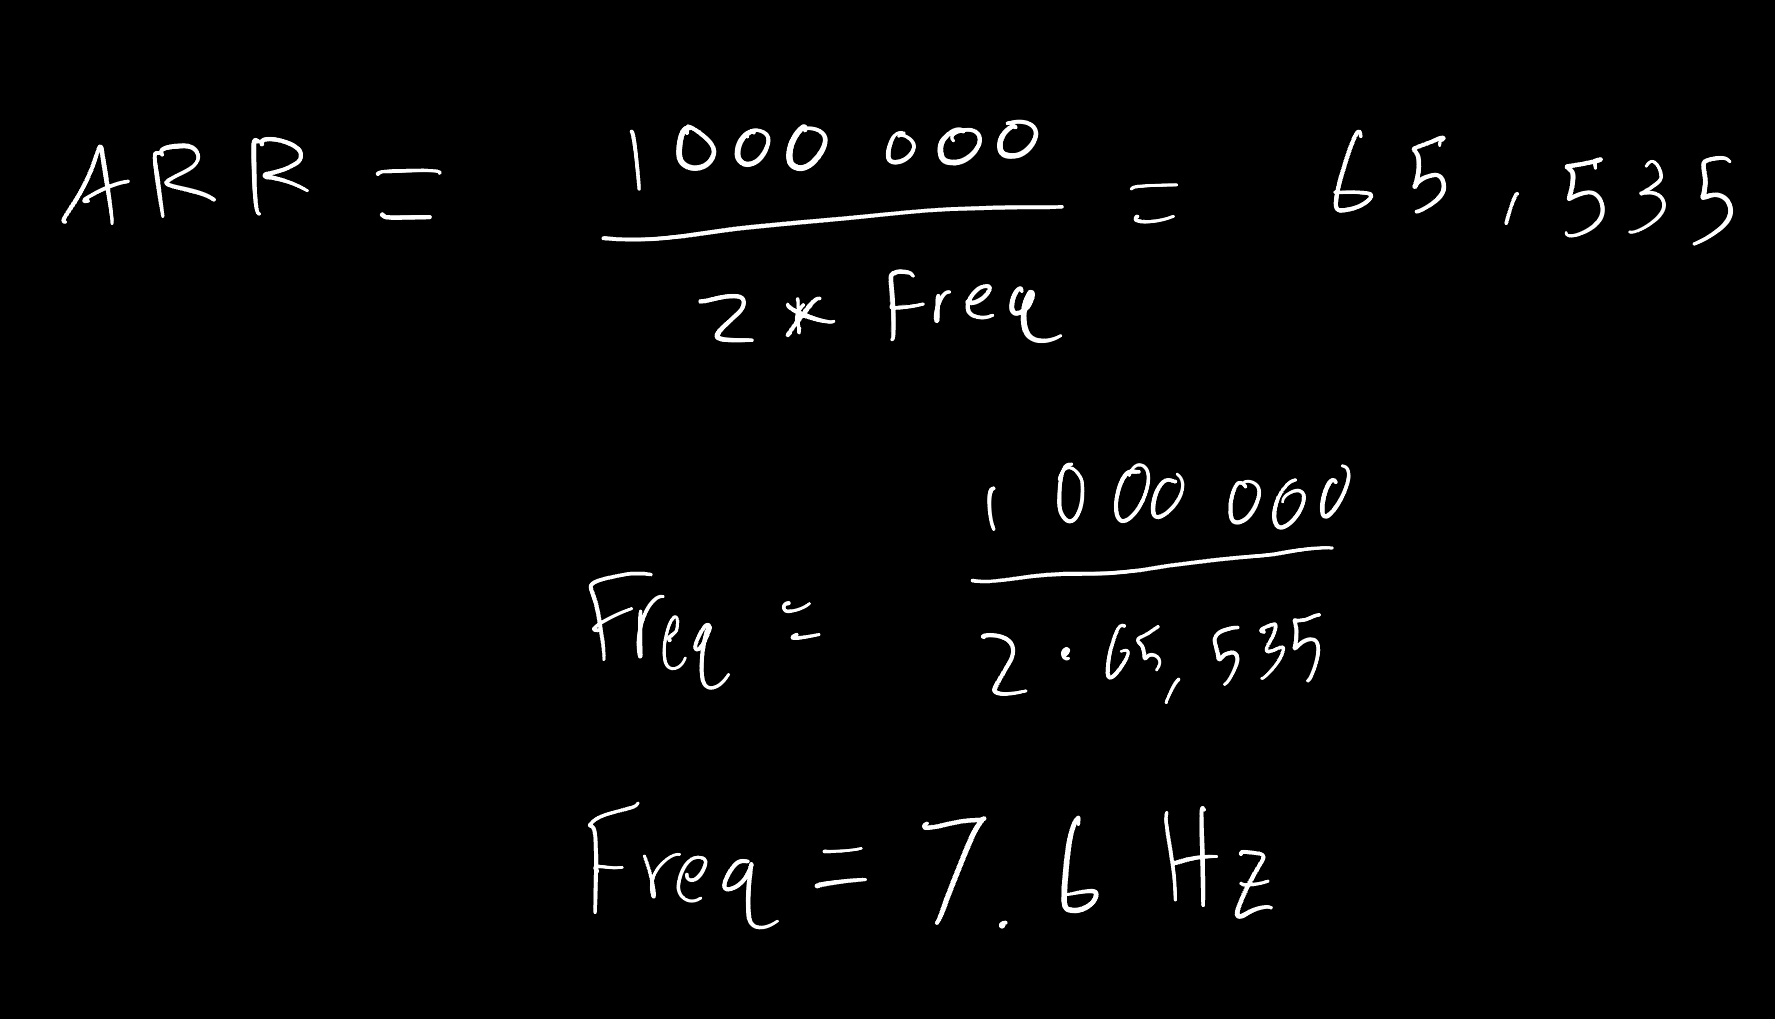 ARR = 1000 000 / 2 * Freq = 65,535
Freq = 1 000 000 / 2 · 65,535
Freq = 7.6 Hz